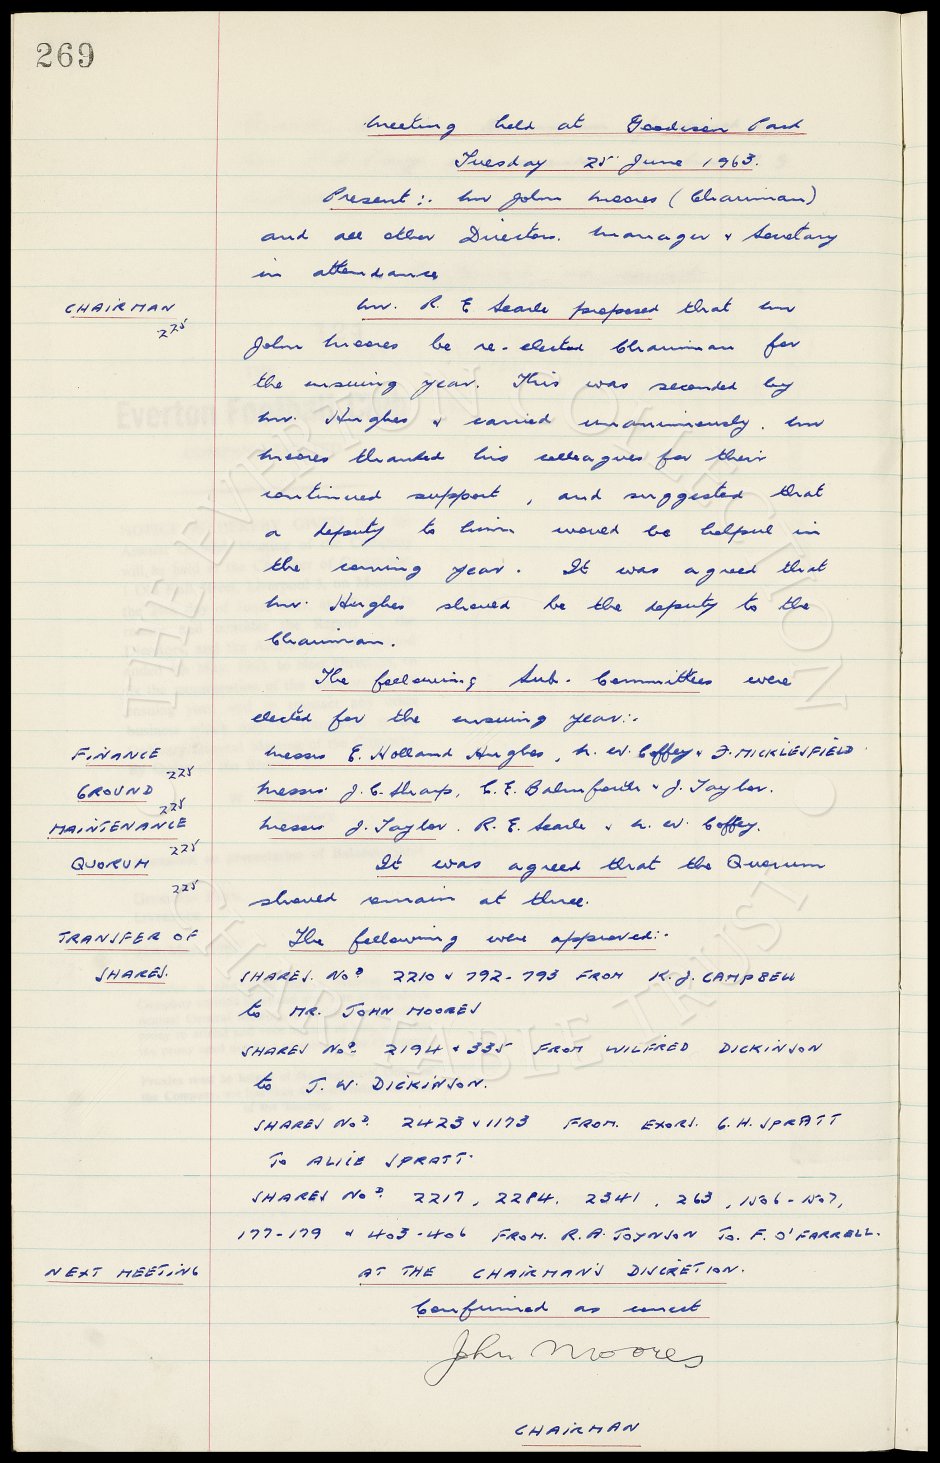 269
Meeting held at Goodison Park
Tuesday 25 June 1963.
Present:- Mr John Moores (Chairman)
and all other Directors. Manager & Secretary
in attendance
CHAIRMAN Mr. R. E Searle proposed that Mr
225
John Moores be re-elected Chairman for
the ensuing year. This was seconded by
Mr. Hughes & carried unanimously. Mr
Moores thanked his colleagues for their
continued support, and suggested that
a deputy to him would be helpful in
the coming year. It was agreed that
Mr. Hughes should be the deputy to the
Chairman.
The following Sub-Committees were
elected for the ensuing year:-
FINANCE Messrs E. Holland Hughes, N. W. Coffey & F. MICKLESFIELD
225
GROUND Messrs. J. C. Sharp, C. E. Balmforth & J. Taylor.
225
MAINTENANCE Messrs J. Taylor. R. E. Searle & N. W. Coffey.
225
QUORUM It was agreed that the Quorum
225
should remain at three.
TRANSFER OF The following were approved:-
SHARES. SHARES. Nos 2210 & 792-793 FROM K. J. CAMPBELL
to MR. JOHN MOORES
SHARES Nos. 2194 & 335 FROM WILFRED DICKINSON
to J. W. DICKINSON.
SHARES Nos. 2423 & 1173 FROM. EXORS. G. H. SPRATT
To ALICE SPRATT.
SHARES Nos. 2217, 2284, 2341, 263, 1506-1507,
177-179 & 403-406 FROM. R. A. JOYNSON To. F. O'FARRELL.
NEXT MEETING AT THE CHAIRMAN'S DISCRETION.
Confirmed as correct
John Moores
CHAIRMAN
THE EVERTON COLLECTION
CHARITABLE TRUST